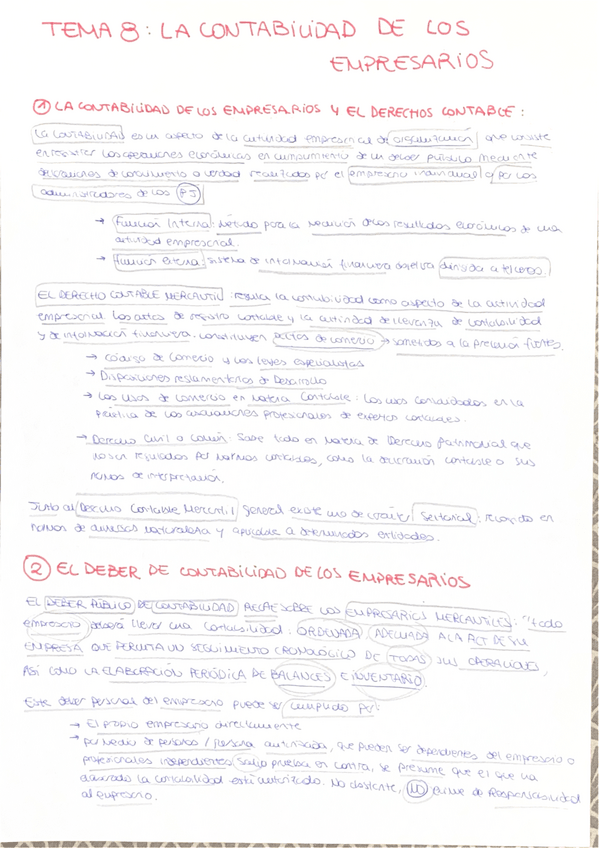 TEMA 8: LA CONTABILIDAD DE LOS
EMPRESARIOS
① LA CONTABILIDAD DE LOS EMPRESARIOS Y EL DERECHOS CONTABLE:
LA CONTABILIDAD es un aspecto de la actividad empresarial de organización que consiste
en registrar las operaciones económicas en cumplimiento de un deber público mediante
declaraciones de conocimiento o verdad realizadas por el empresario individual o por los
administradores de las PJ
→ Función Interna: Método para la medición de los resultados económicos de una
actividad empresarial.
→ Función externa: sistema de información financiera objetiva dirigida a terceros.
EL DERECHO CONTABLE MERCANTIL: regula la contabilidad como aspecto de la actividad
empresarial. Los actos de registro contable y la actividad de llevanza de contabilidad
y de información financiera. constituyen actos de comercio → sometidos a la prelación fuentes.
→ Código de comercio y las leyes especiales
→ Disposiciones reglamentarias de Desarrollo
→ Los usos de comercio en materia contable: Los usos consolidados en la
práctica de las asociaciones profesionales de expertos contables.
→ Derecho Civil o Común: Sobre todo en materia de Derecho patrimonial que
no son regulados por normas contables, como la declaración contable o sus
normas de interpretación.
Junto al Derecho Contable Mercantil General existe uno de carácter Sectorial: recogido en
normas de diversas naturaleza y aplicable a determinadas entidades.
② EL DEBER DE CONTABILIDAD DE LOS EMPRESARIOS
EL DEBER PÚBLICO DE CONTABILIDAD RECAE SOBRE LOS EMPRESARIOS MERCANTILES: "todo
empresario deberá llevar una contabilidad: ORDENADA, ADECUADA A LA ACT DE SU
EMPRESA QUE PERMITA UN SEGUIMIENTO CRONOLÓGICO DE TODAS SUS OPERACIONES,
ASÍ COMO LA ELABORACIÓN PERIÓDICA DE BALANCES E INVENTARIO.
Este deber personal del empresario puede ser cumplido por:
→ El propio empresario directamente
→ por medio de personas / persona autorizada, que pueden ser dependientes del empresario o
profesionales independientes. Salvo prueba en contra, se presume que el que ha
elaborado la contabilidad está autorizado. No obstante, NO exime de Responsabilidad
al empresario.